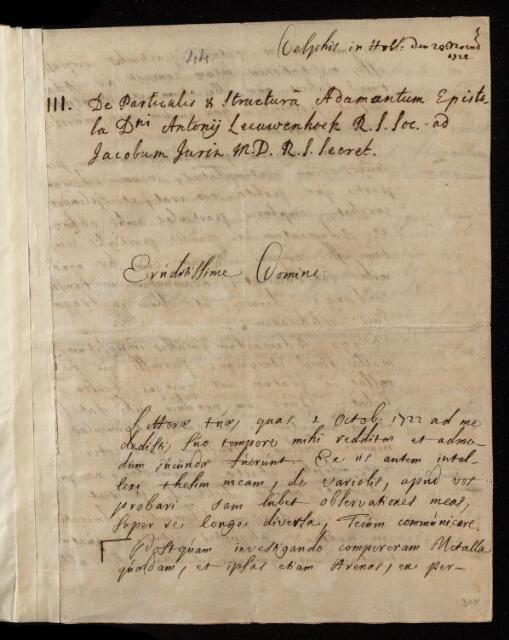 Delphis in Holl. den 20 Novemb
1722
III. De Particulis & Structurâ Adamantum Episto
la Dni Antonij Leeuwenhoek R. S. Soc. ad
Jacobum Jurin M.D. R. S. Secret.
Eruditissime Domine:
Litterae tuae, quas 2 Octob. 1722 ad me
dedisti, suo tempore mihi redditae et admo-
dum jucundae fuerunt. Ex iis autem intel-
lexi thesim meam, de variolis, apud vos
probari. Jam lubet observationes meas,
super re longe diversa, Tecum communicare.
Postquam investigando compereram Metalla
quaedam, et ipsas etiam Arenas, ex per-